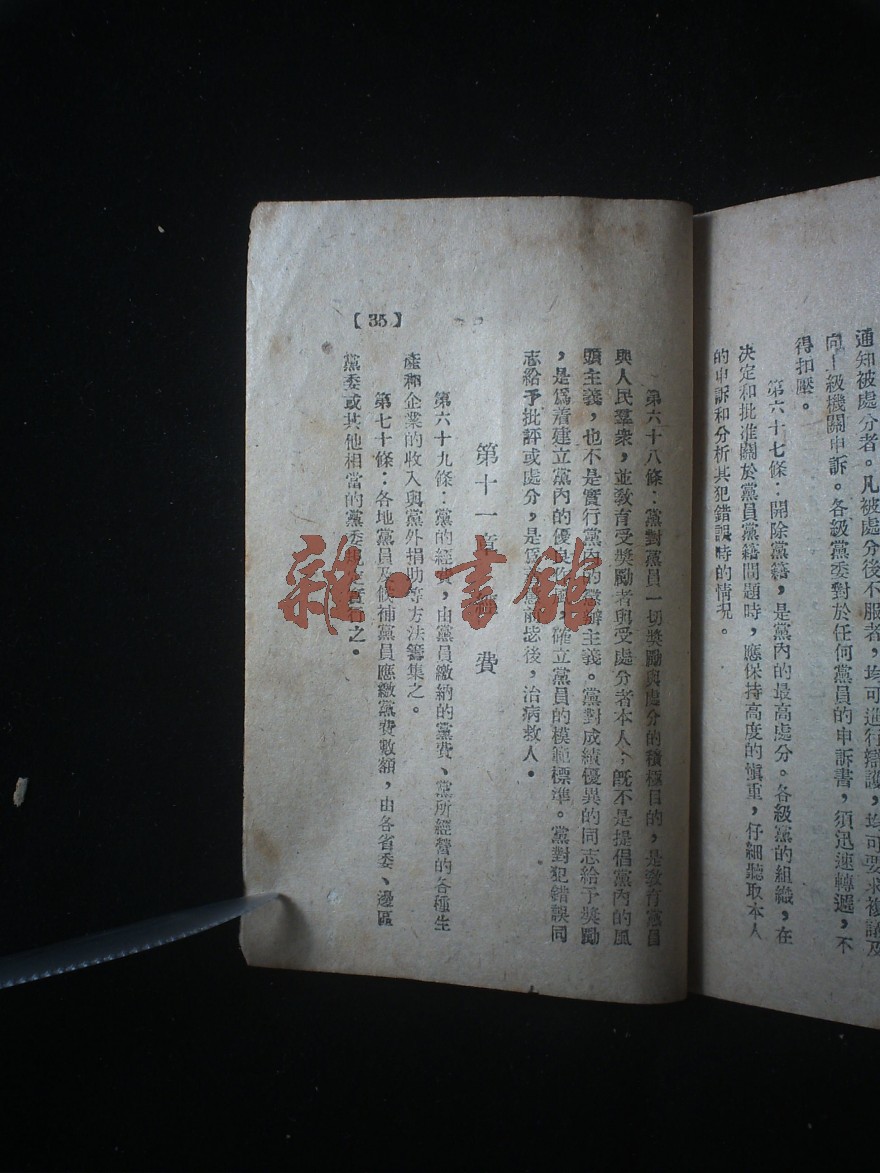 通知被處分者。凡被處分後不服者，均可進行辯護，均可要求複議及
向上級機關申訴。各級黨委對於任何黨員的申訴書，須迅速轉遞，不
得扣壓。
第六十七條：開除黨籍，是黨內的最高處分。各級黨的組織，在
決定和批准關於黨員黨籍問題時，應保持高度的慎重，仔細聽取本人
的申訴和分析其犯錯誤時的情況。
第六十八條：黨對黨員一切獎勵與處分的積極目的，是教育黨員
與人民羣衆，並敎育受獎勵者與受處分者本人；旣不是提倡黨內的風
頭主義，也不是實行黨內的懲辦主義。黨對成績優異的同志給予獎勵
，是爲着建立黨內的優良，確立黨員的模範標準。黨對犯錯誤同
志給予批評或處分，是爲前毖後，治病救人。
第十一章 費
第六十九條：黨的經，由黨員繳納的黨費、黨所經營的各種生
產和企業的收入與黨外捐助等方法籌集之。
第七十條：各地黨員及候補黨員應繳黨費數額，由各省委、邊區
黨委或其他相當的黨委之。
【35】
雜·書館